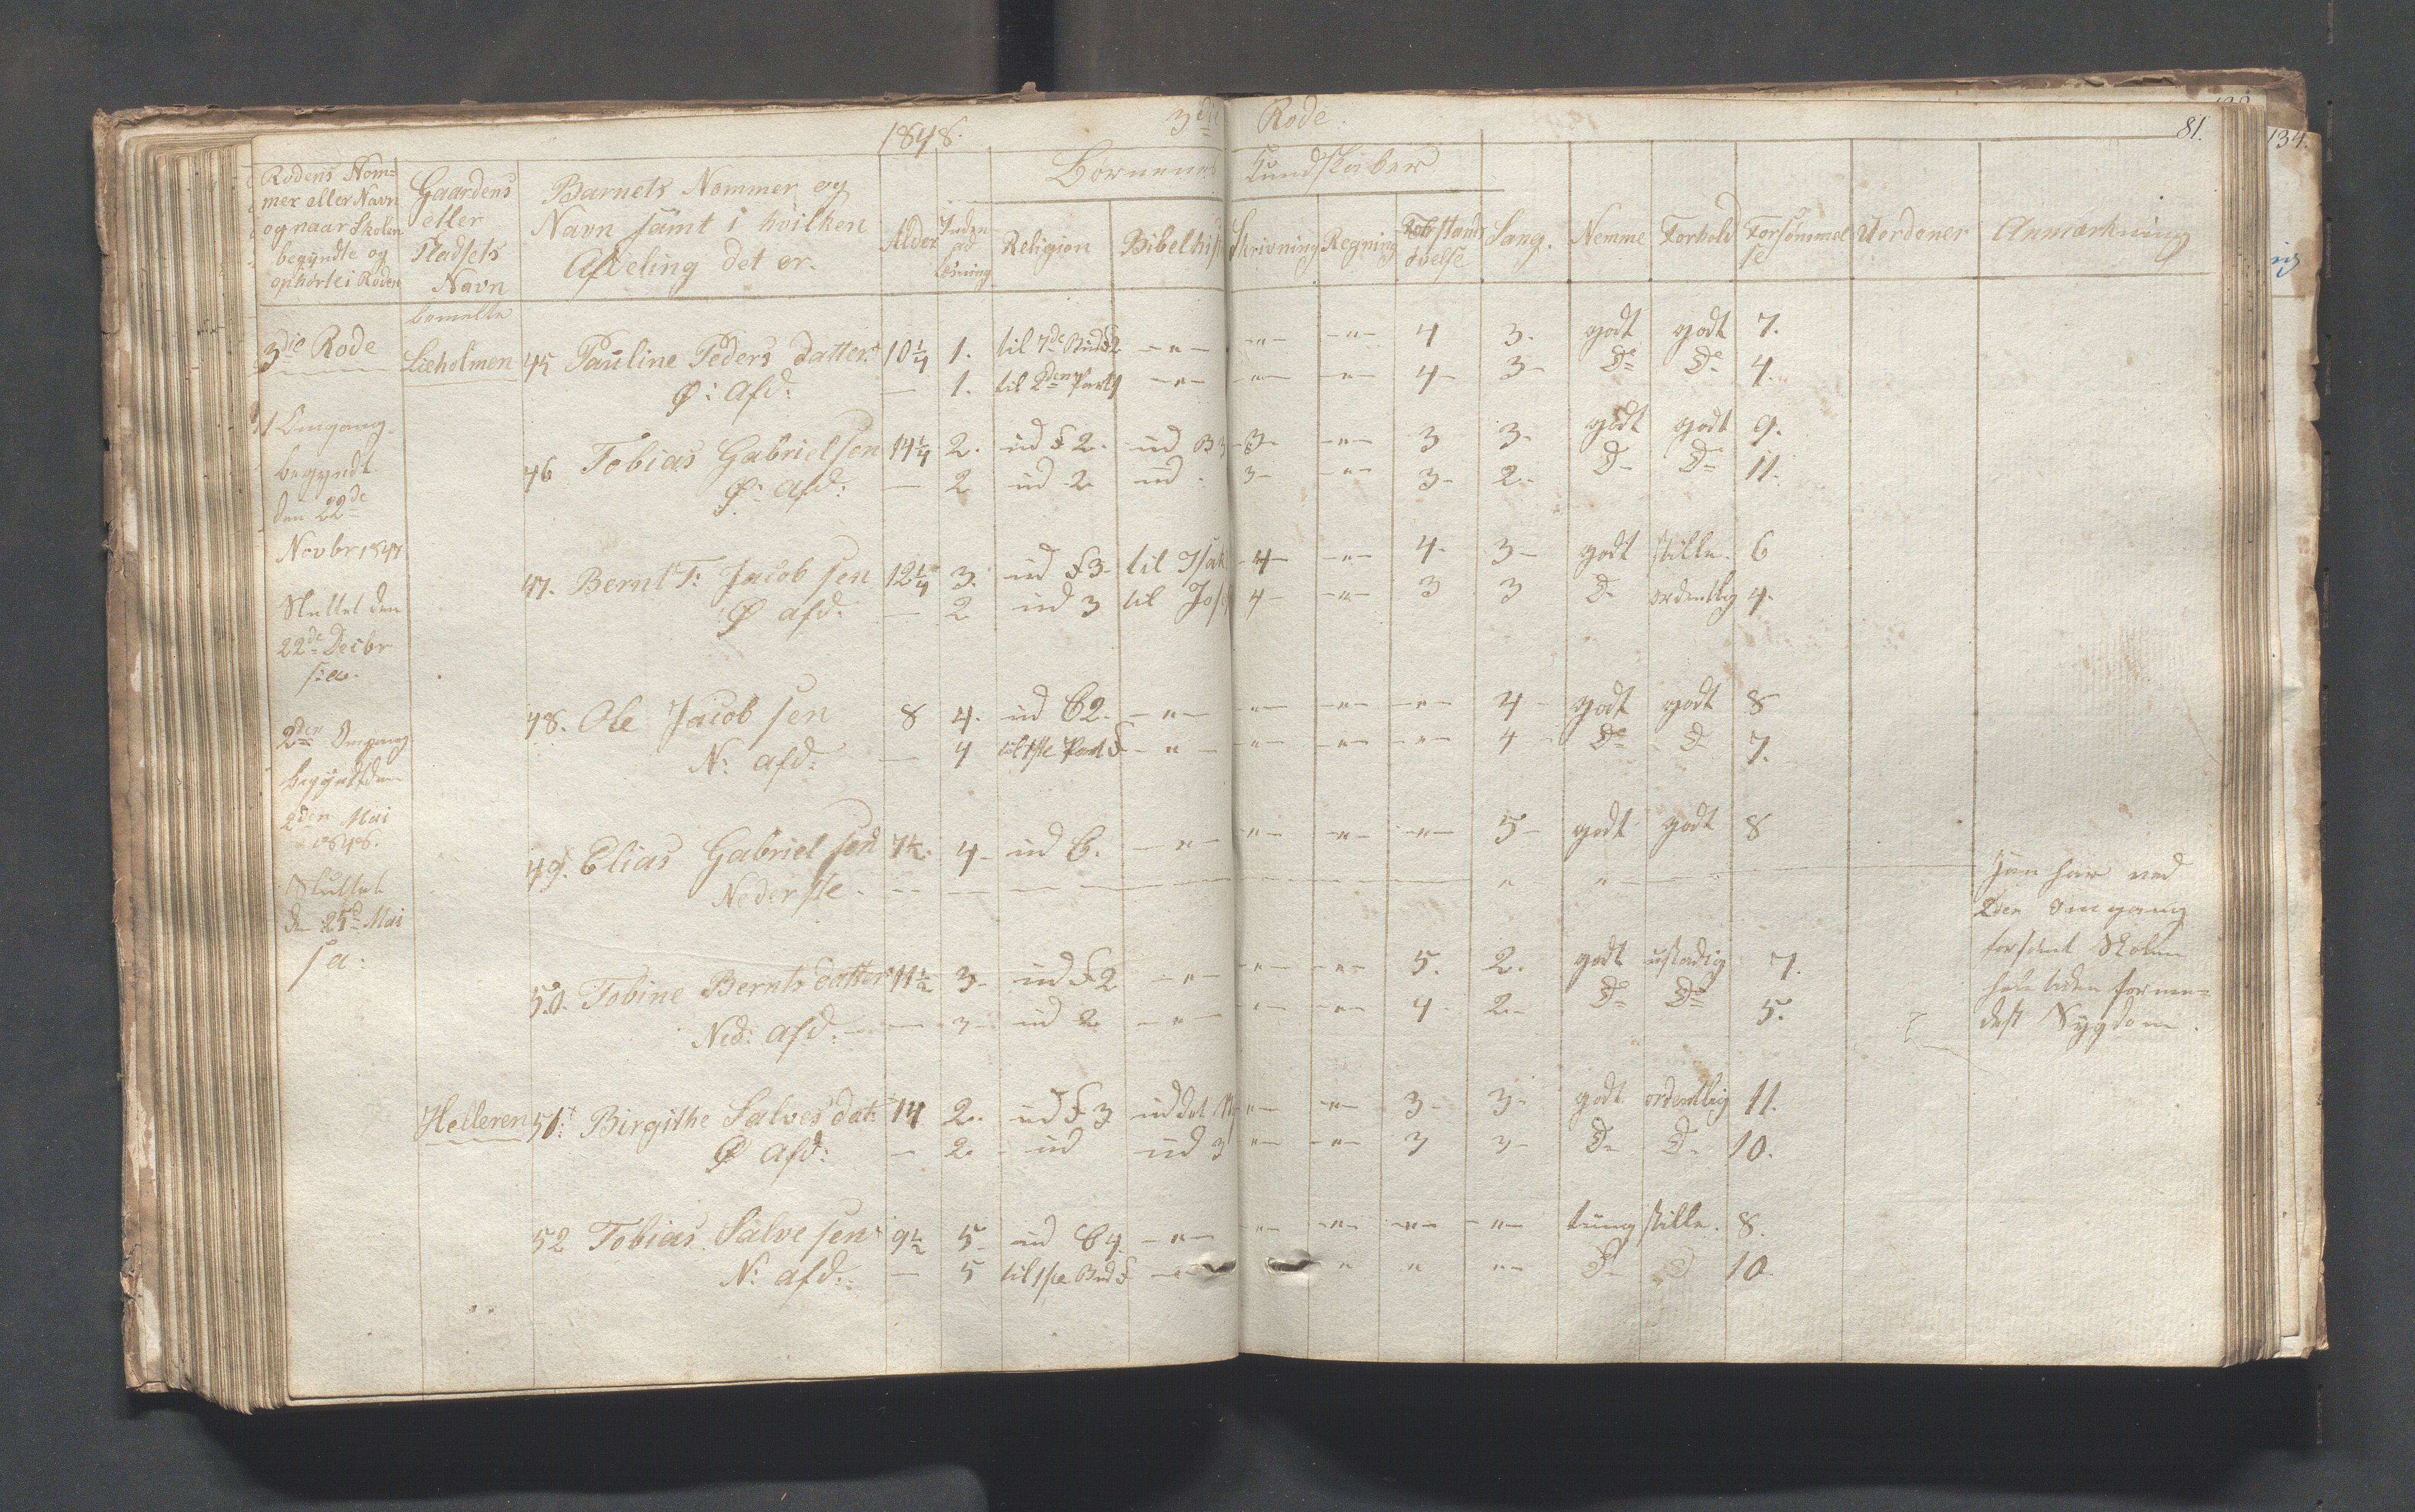 1848. 3die Rode.
81.
134.
Rodens Nom=
mer eller Navn
og naar Skolen
begyndte og
ophørte i Roden
Gaardens
eller
Pladsets
Navn
Barnets Nommer og
Navn samt i hvilken
Afdeling det er.
Alder
Inden
ad
Læsning
Børnenes Kundskaber
Religion
Bibelhist
Skrivning
Regning
Forstands
øvelse
Sang.
Nemme
Forhold
Forsømmel
se
Uordener
Anmærkning
3die Rode
1 Omgang.
begyndt
den 22de
Novbr 1847
Sluttet den
22de Decbr
s: a.
2den Omgang
begyndt den
2den Mai
1848.
Sluttet
d. 25d Mai
s a:
Lieholmen
45 Pauline Peders datter 10 1/4 1. til 7de Bud F2 -"- -"- -"- 4 3. godt godt 7.
Ø: Afd: — 1. til 2den Part -"- -"- -"- 4- 3- Do Do 4.
46 Tobias Gabrielsen 14 1/4 2. ud F 2. ud B 3 -3- -"- 3 3. godt godt 9.
Ø: Afd: — 2 ud 2 ud . 3- -"- 3- 2- D- Do 11.
47. Bernt T: Jacobsen 12 1/4 3. ud F3- til Isak -4- -"- 4- 3- godt stille. 6
Ø afd: — 2 ud 3 til Jos 4- -"- 3 3 D- ordentlig 4.
48. Ole Jacobsen 8 4. ud C2. -"- -"- -"- -"- 4- godt godt 8
N: afd: — 4 til 1ste Part F -"- -"- -"- -"- 4- Do D- 7.
49. Elias Gabrielsen 7 1/2. 4- ud C. -"- -"- -"- -"- 5- godt godt 8
Nederste. — — — " "
Han har ved
2den Omgang
forsømt Skolen
hele tiden forme=
delst Sygdom.
50. Tobine Bernts datter 11 1/2 3- ud F2 -"- -"- -"- 5. 2. godt ustadig 7.
Ned: afd: — 3- ud 2 -"- -"- -"- 4- 2- Do Do 5.
Helleren 51: Birgithe Salves dat: 14 2. ud F 3 ud det -"- -"- 3- 3- godt ordentlig 11.
Ø Afd: — 2. ud ud 3 -"- -"- 3 3- D- D- 10.
52 Tobias Salvesen 9 1/2 5- ud C4. -"- -"- -"- -"- -"- tung stille. 8.
N: afd: — 5 til 1ste Bud F -"- " " "- D- D 10.